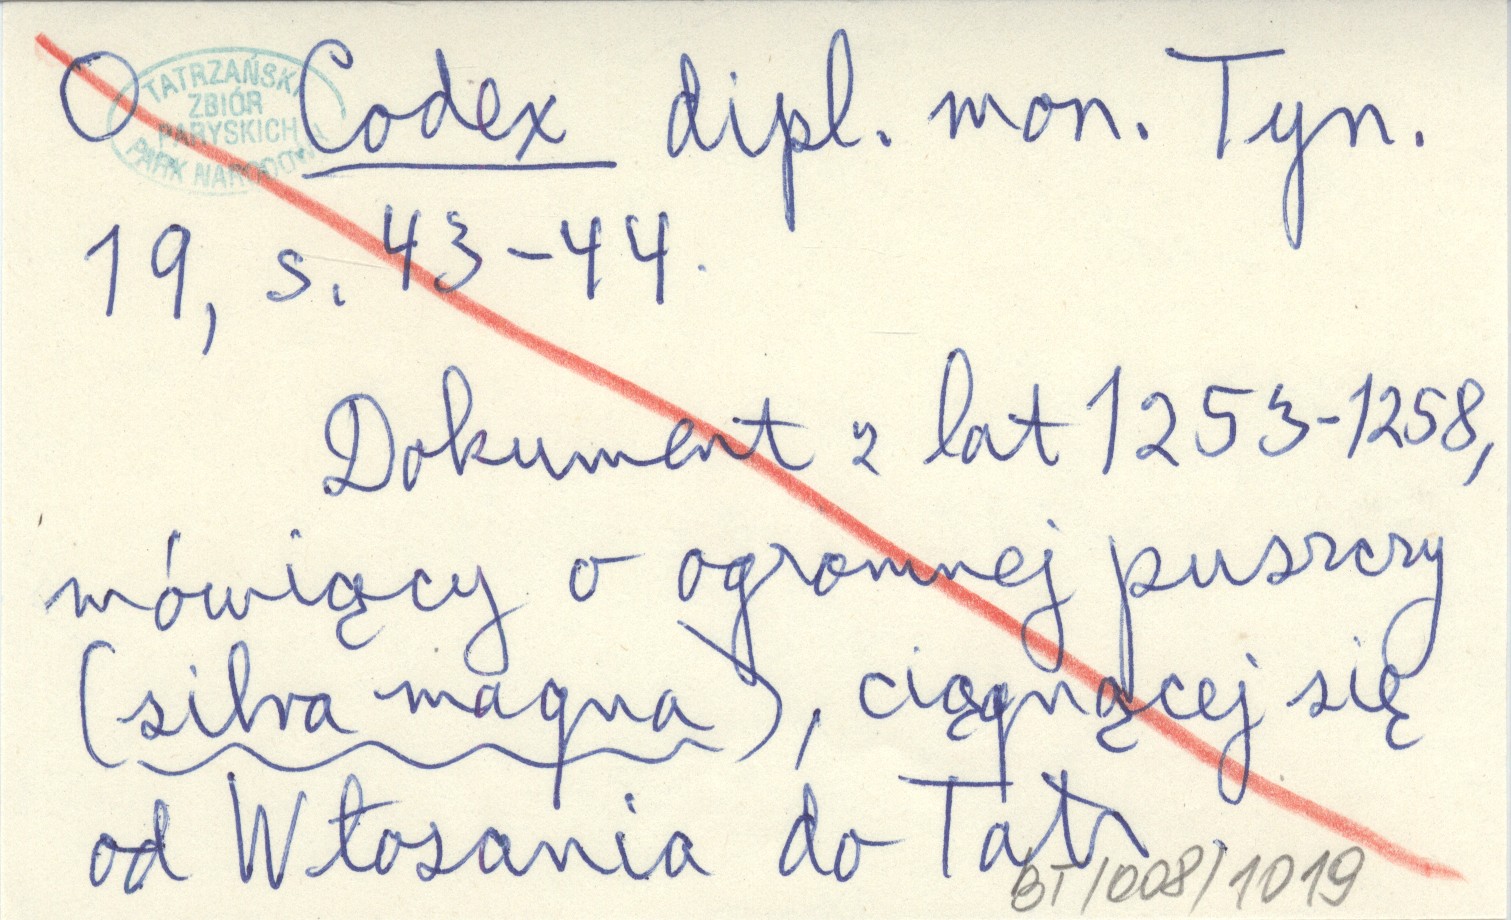 O Codex dipl. mon. Tyn.
TATRZAŃSKI
ZBIÓR
PARYSKICH
PARK NARODOWY
19, s. 43-44.
Dokument z lat 1253-1258,
mówiący o ogromnej puszczy
(silva magna), ciągnącej się
od Włosania do Tatr.
BT/008/1019